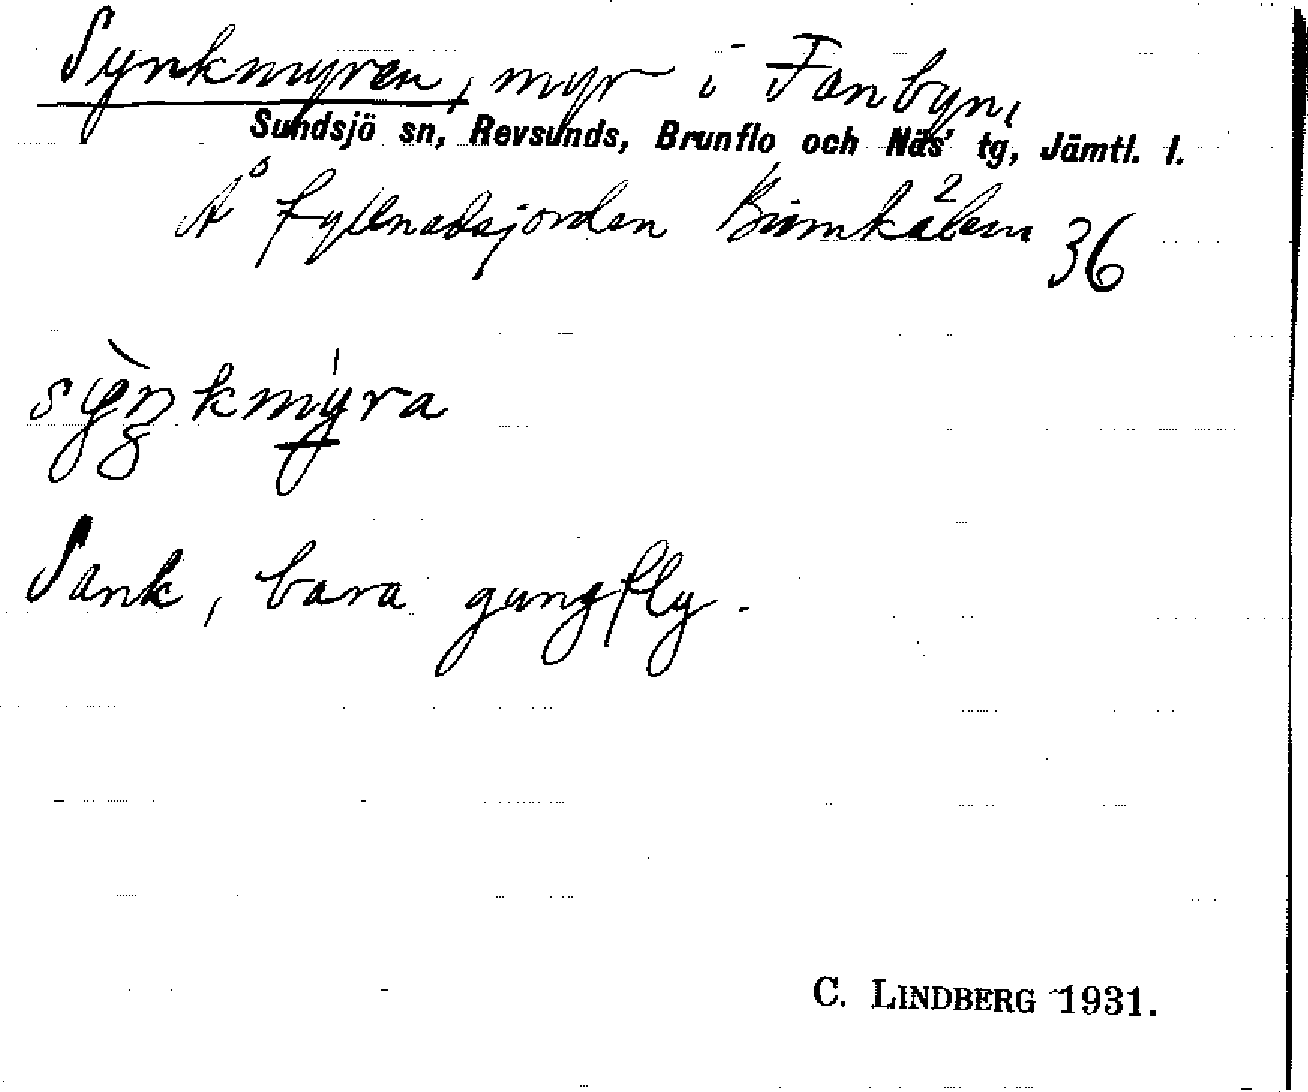 Synkmyren, myr i Fanbyn,
Sundsjö sn, Revsunds, Brunflo och Näs' tg, Jämtl. l.
Å fyllnadsjorden 36
synkmyra
Sank, bara gungfly.
C. LINDBERG 1931.